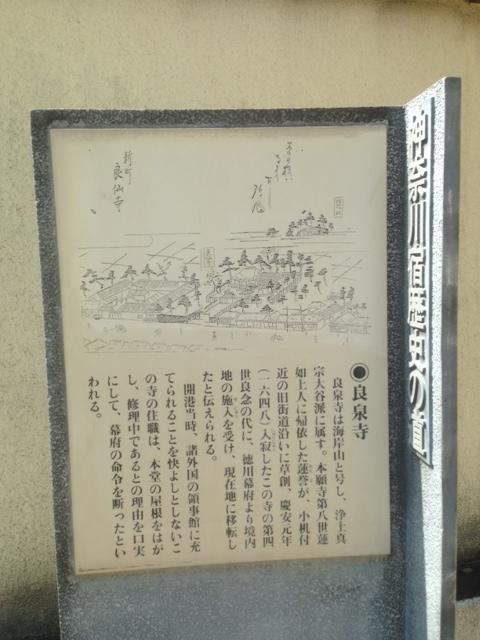 神奈川宿歴史の道
新町
良仙寺
◉良泉寺
良泉寺は海岸山と号し、浄土真
宗大谷派に属す。本願寺第八世蓮
如上人に帰依した蓮誉が、小机付
近の旧街道沿いに草創、慶安元年
(一六四八)入寂したこの寺の第四
世良念の代に、徳川幕府より境内
地の施入を受け、現在地に移転し
たと伝えられる。
開港当時、諸外国の領事館に充
てられることを快よしとしないこ
の寺の住職は、本堂の屋根をはが
し、修理中であるとの理由を口実
にして、幕府の命令を断ったとい
われる。